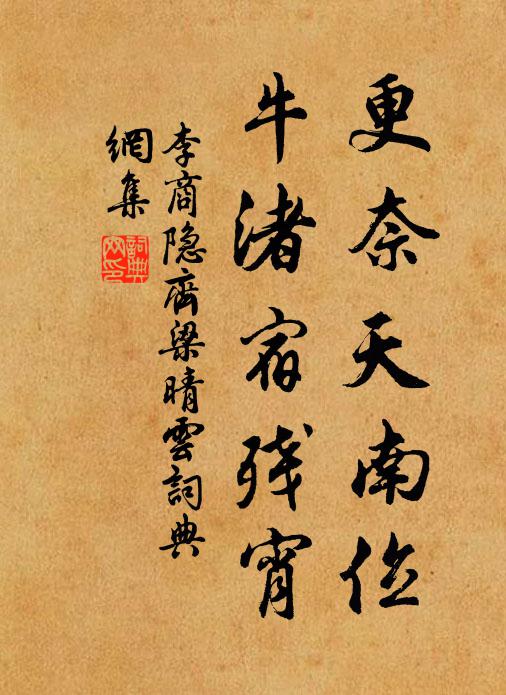 更奈天南位
牛渚宿残宵
李商隐齐梁晴雲詞典
網集
詞典
网印